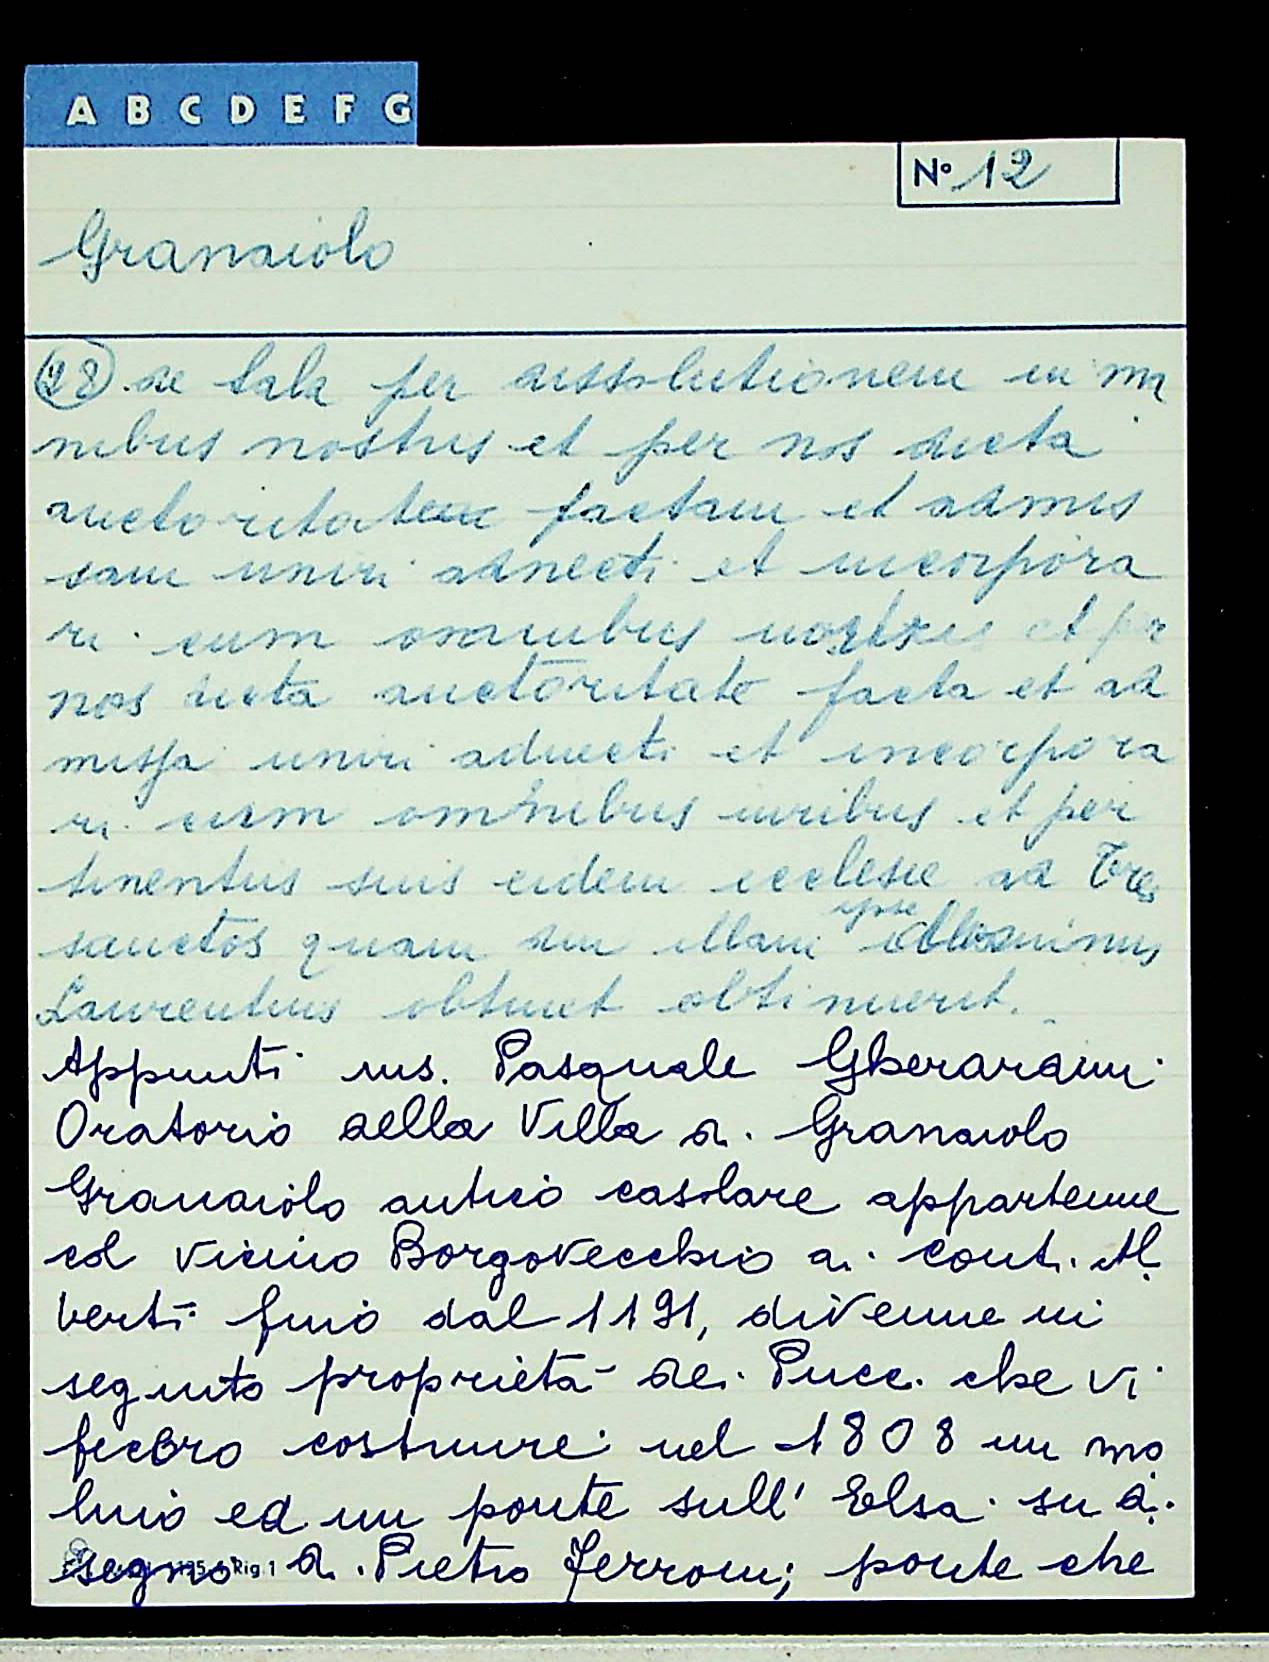 A B C D E F G
N° 12
Granaiolo
28 de Sala per dissolutionem in ma
nibus nostris et per nos dicta
auctoritatem factam et admis
sam uniri adnecti et incorpora
ri cum omnibus et per
nos dicta auctoritate facta et ad
missa uniri adnecti et incorpora
ri cum omnibus iuribus et per
tinentiis suis eidem ecclesie ad Tres
sanctos quam dum illam ipse Dominus
Laurentius obtinet obtinuerit.
Appunti ms. Pasquale Gherardini
Oratorio della Villa di Granaiolo
Granaiolo antico casolare appartenne
col vicino Borgovecchio ai conti Al
berti fino dal 1191, divenne in
seguito proprietà dei Pucci che vi
fecero costruire nel 1808 un mo
lino ed un ponte sull' Elsa su di
segno di Pietro Ferroni; ponte che
Rig 1